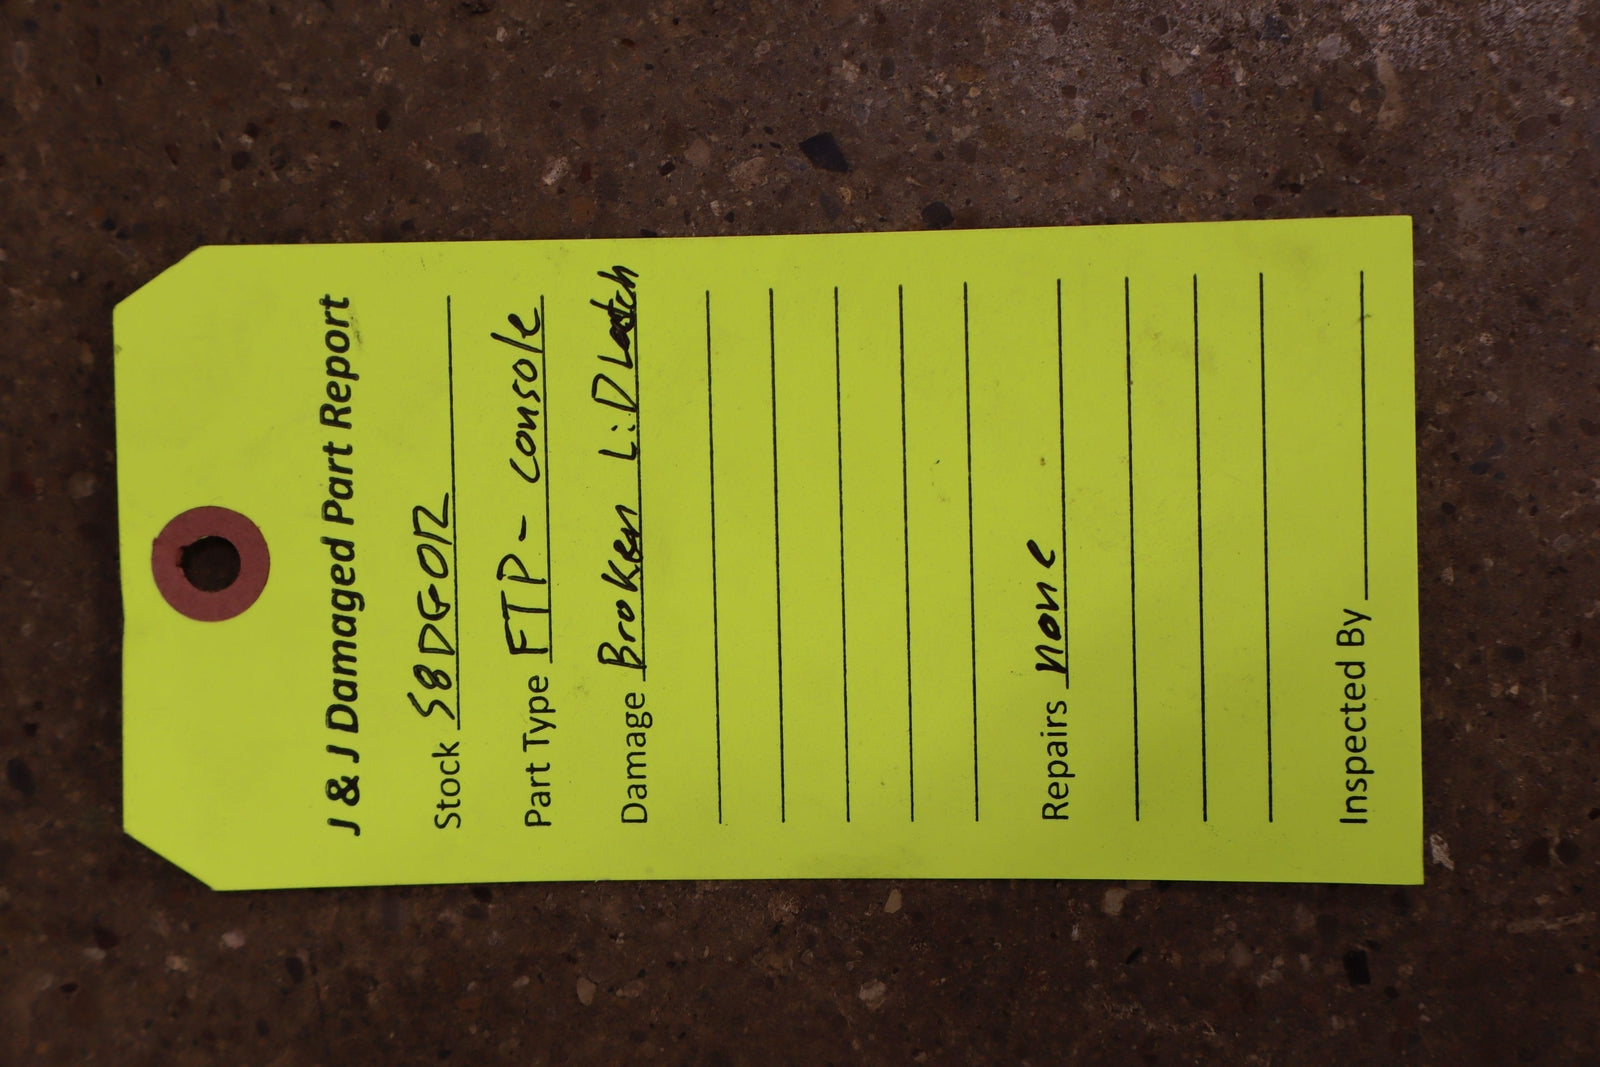 J & J Damaged Part Report
Stock S8DG02
Part Type FTP - console
Damage Broken L:D Latch
Repairs none
Inspected By